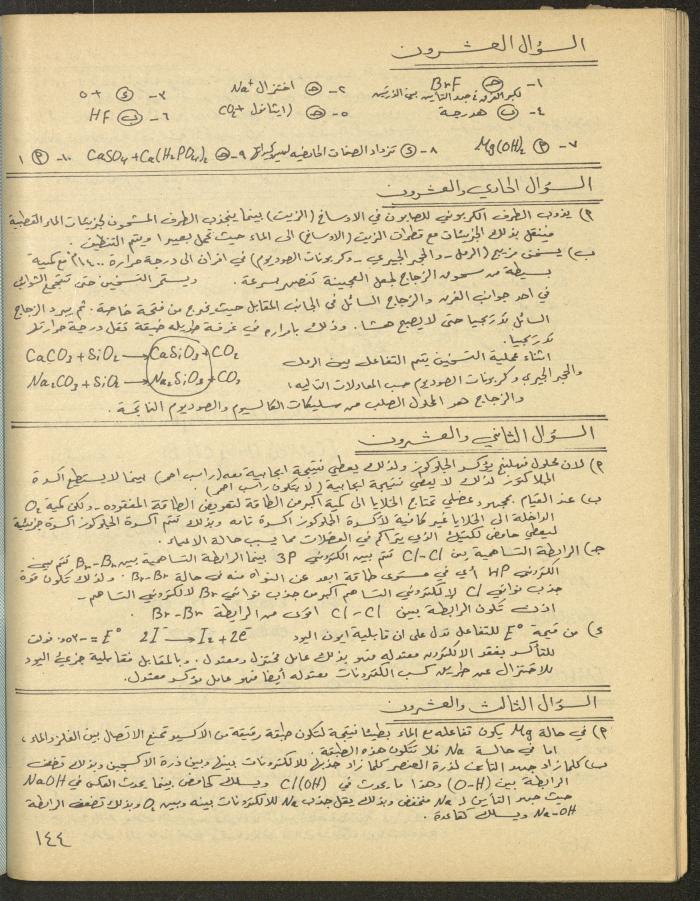 السؤال العشرون
١- هـ BrF ٢- هـ اختزال Na+ ٣- د +٥
لكبر الفرق في جهد التأين بين الذرتين
٤- ب هدرجة ٥- هـ (ايثانول + CO₂ ٦- ب HF
٧- P Mg(OH)₂ ٨- د تزداد الصفات الحامضية ٩- هـ CaSO₄ + Ca(H₂PO₄)₂ ١٠- P ١
السؤال الحادي والعشرون
P) يذوب الطرف الكربوني للصابون في الاوساخ (الزيت) بينما ينجذب الطرف المشحون لجزيئات الماء القطبية
فينتقل بذلك الجزيئات مع قطرات الزيت (الاوساخ) الى الماء حيث تحمل بعيدا ويتم التنظيف.
ب) يسخن مزيج (الرمل - والحجر الجيري - وكربونات الصوديوم) في افران الى درجة حرارة ١٤٠٠°م مع كمية
بسيطة من مسحوق الزجاج لجعل العجينة تنصهر بسرعة. ويستمر التسخين حتى تتجمع الشوائب
في احد جوانب الفرن والزجاج السائل في الجانب المقابل حيث يخرج من فتحة خاصة. ثم يبرد الزجاج
السائل تدريجيا حتى لا يصبح هشا. وذلك بامراره في غرفة طويلة ضيقة تقل درجة حرارتها
تدريجيا.
اثناء عملية التسخين يتم التفاعل بين الرمل CaCO₃ + SiO₂ → CaSiO₃ + CO₂
والحجر الجيري وكربونات الصوديوم حسب المعادلات التالية: Na₂CO₃ + SiO₂ → Na₂SiO₃ + CO₂
والزجاج هو المحلول الصلب من سليكات الكالسيوم والصوديوم الناتجة.
السؤال الثاني والعشرون
P) لان محلول فهلنج يؤكسد الجلوكوز ولذلك يعطي نتيجة ايجابية معه (راسب احمر) بينما لا يستطيع اكسدة
الجلوكوز لذلك لا يعطي نتيجة ايجابية (لا يتكون راسب احمر).
ب) عند القيام بمجهود عضلي تحتاج الخلايا الى كمية اكبر من الطاقة لتعويض الطاقة المفقودة - ولكن كمية O₂
الداخلة الى الخلايا غير كافية لأكسدة الجلوكوز اكسدة تامة وبذلك تتم اكسدة الجلوكوز اكسدة جزيئية
ليعطي حامض لكتيك الذي يتراكم في العضلات مما يسبب حالة الاعياء.
جـ) الرابطة التساهمية بين Cl-Cl تتم بين الكتروني 3P بينما الرابطة التساهمية بين Br-Br تتم بين
الكتروني 4P أي في مستوى طاقة ابعد عن النواة منه في حالة Br-Br. ولذلك تكون قوة
جذب نواتي Cl لإلكتروني التساهم اكبر من جذب نواتي Br لالكتروني التساهم -
اذن تكون الرابطة بين Cl-Cl اقوى من الرابطة Br-Br.
د) من قيمة E° للتفاعل تدل على ان قابلية ايون اليود 2I⁻ → I₂ + 2e⁻ E° = -٥٣ر٠ فولت
للتأكسد بفقد الالكترون معتدلة فهو بذلك عامل مختزل ومعتدل. وبالمقابل فقابلية جزيء اليود
للاختزال عن طريق كسب الكترونات معتدلة أيضا فهو عامل مؤكسد معتدل.
السؤال الثالث والعشرون
P) في حالة Mg يكون تفاعله مع الماء بطيئا نتيجة لتكون طبقة رقيقة من الاكسيد تمنع الاتصال بين الفلز والماء،
اما في حالة Na فلا تتكون هذه الطبقة.
ب) كلما زاد جهد التأين لذرة العنصر كلما زاد جذبها للالكترونات بينها وبين ذرة الاكسجين وبذلك تضعف
الرابطة بين (O-H) وهذا ما يحدث في Cl(OH) ويسلك كحامض بينما يحدث العكس في NaOH
حيث جهد التأين لـ Na منخفض وبذلك يقل جذب Na للالكترونات بينه وبين O وبذلك تضعف الرابطة
Na-OH ويسلك كقاعدة.
١٤٤